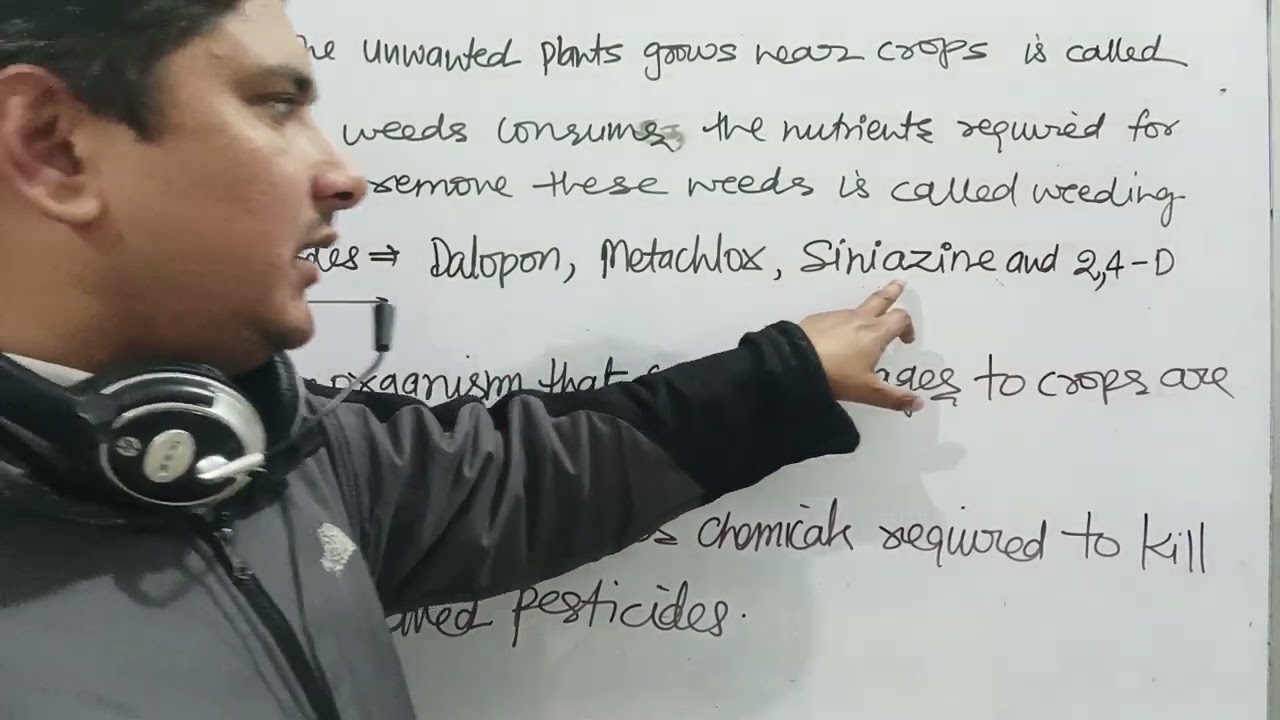 he unwanted plants grows near crops is called
weeds consums the nutrients required for
remove these weeds is called weeding
des ⇒ Dalopon, Metachlox, Siniazine and 2,4-D
oxganism that ages to crops are
s chemicals required to kill
pesticides.